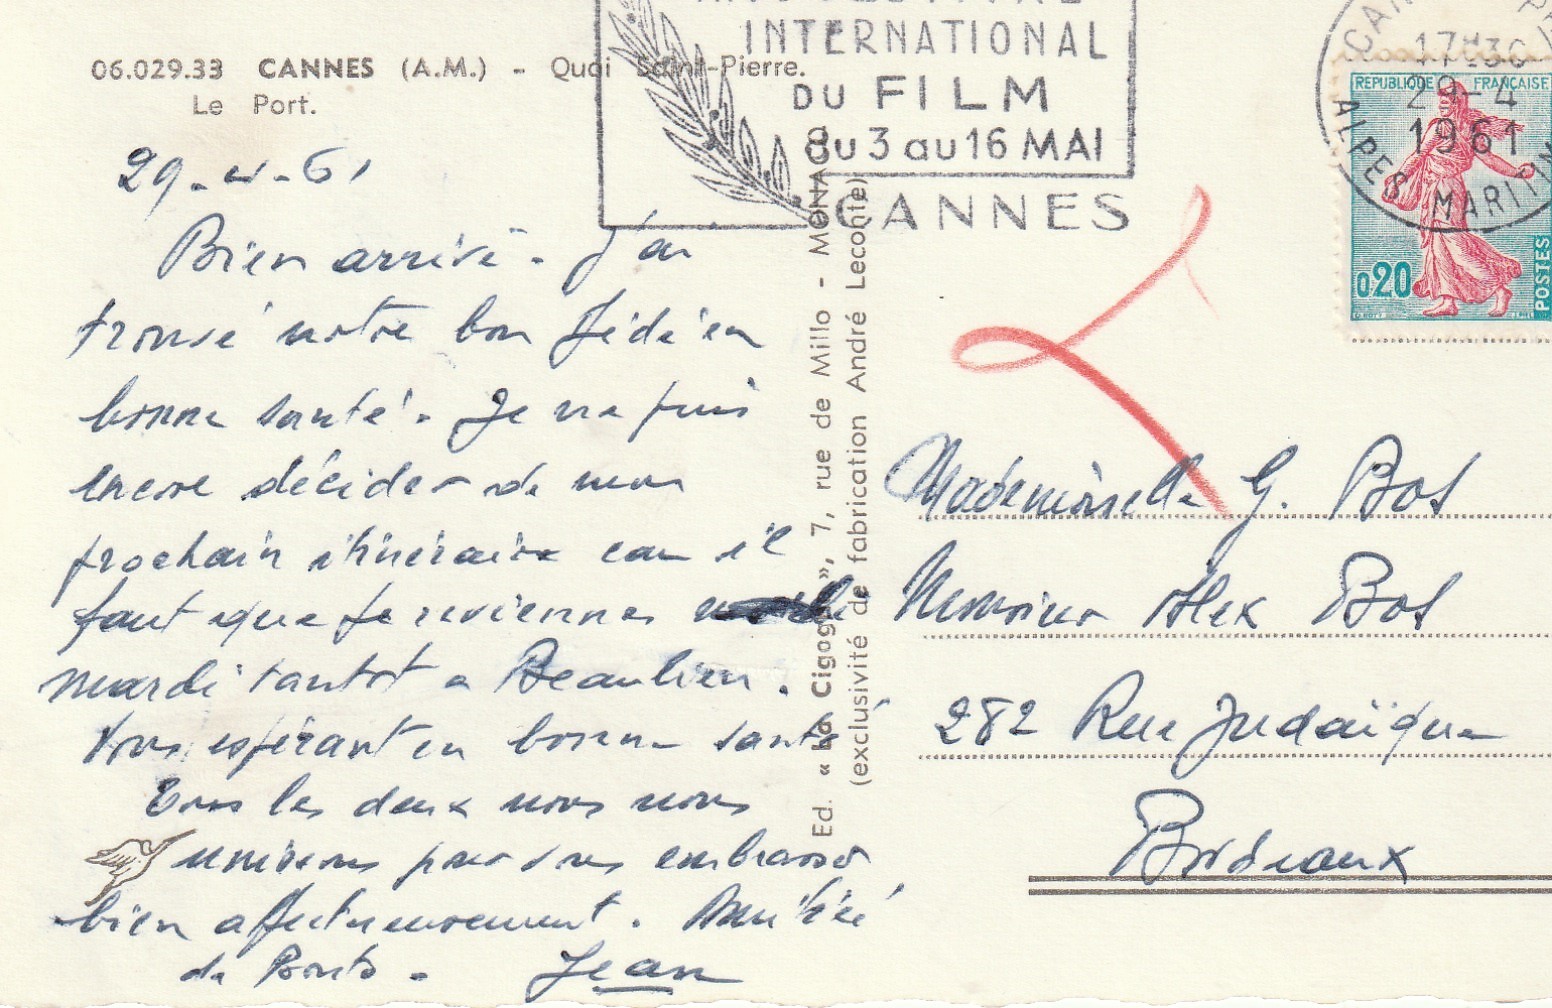 06.029.33 CANNES (A.M.) - Quai Saint-Pierre.
Le Port.
INTERNATIONAL
DU FILM
du 3 au 16 MAI
CANNES
17H30
29-4
1961
ALPES MARITIM
REPUBLIQUE FRANÇAISE
0,20
POSTES
29-4-61
Bien arrivé. J'ai
trouvé notre bon Dédé en
bonne santé. Je ne puis
encore décider de mon
prochain itinéraire car il
faut que je revienne
mardi tantot a Beaulieu.
Vous espérant en bonne santé
tous les deux nous nous
unissons pour vous embrasser
bien affectueusement. Amitié
de Jean
Ed. « La Cigogne », 7, rue de Millo - MONACO
(exclusivité de fabrication André Leconte)
Mademoiselle G. Bos
Monsieur Alex Bos
282 Rue Judaïque
Bordeaux